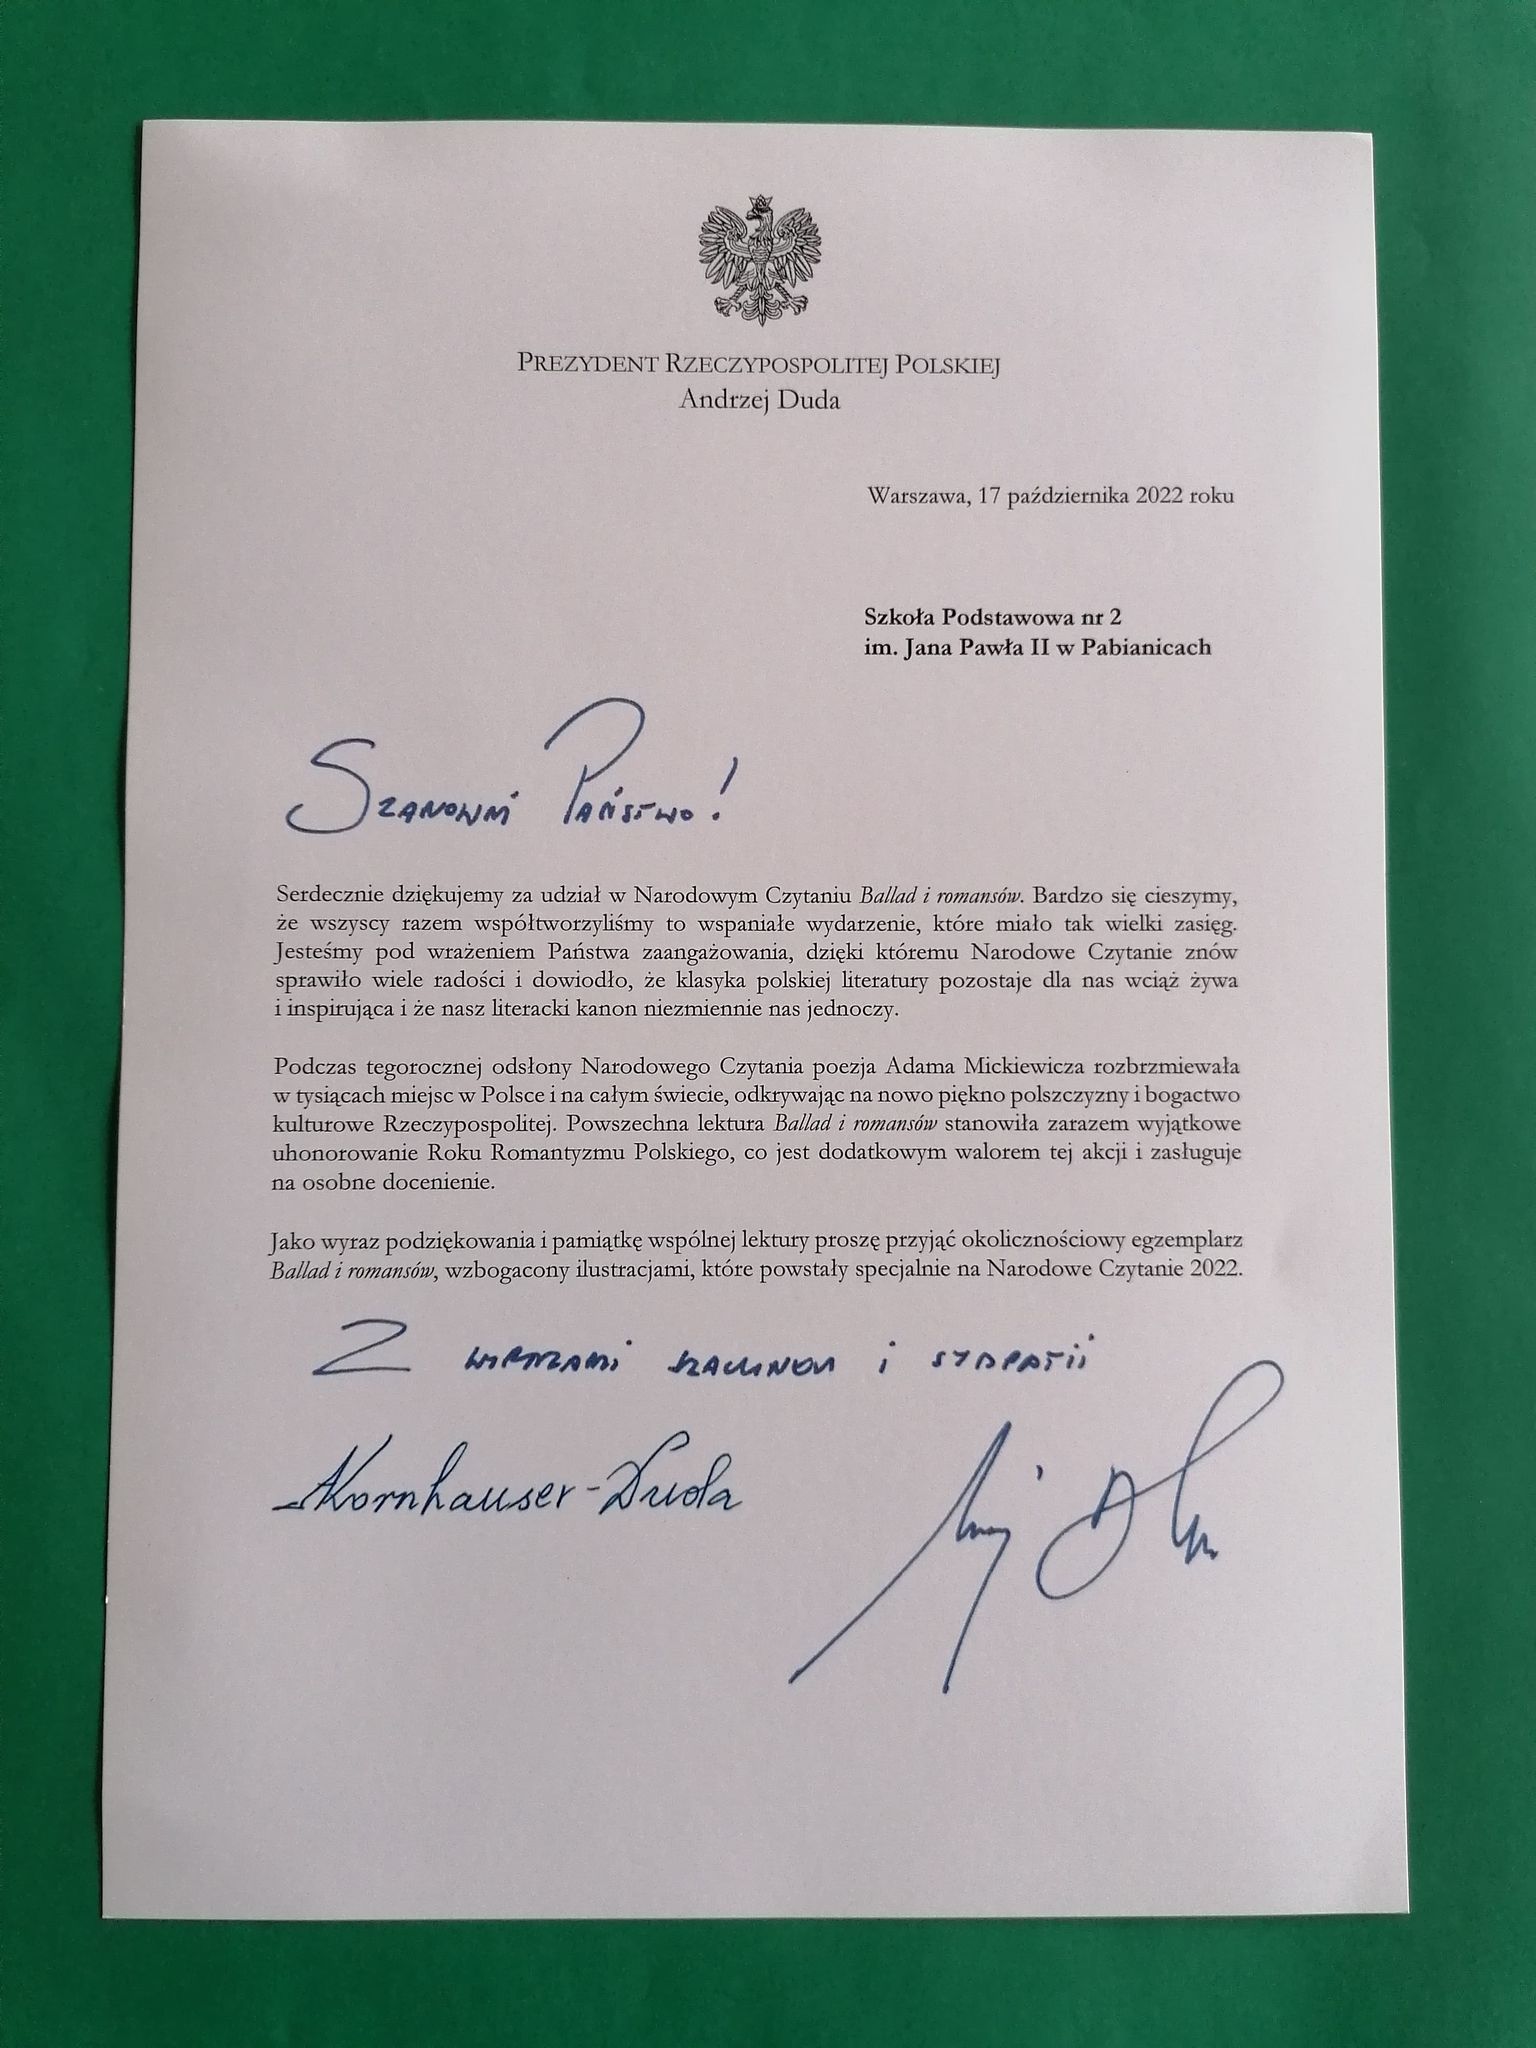 PREZYDENT RZECZYPOSPOLITEJ POLSKIEJ
Andrzej Duda
Warszawa, 17 października 2022 roku
Szkoła Podstawowa nr 2
im. Jana Pawła II w Pabianicach
Szanowni Państwo!
Serdecznie dziękujemy za udział w Narodowym Czytaniu Ballad i romansów. Bardzo się cieszymy,
że wszyscy razem współtworzyliśmy to wspaniałe wydarzenie, które miało tak wielki zasięg.
Jesteśmy pod wrażeniem Państwa zaangażowania, dzięki któremu Narodowe Czytanie znów
sprawiło wiele radości i dowiodło, że klasyka polskiej literatury pozostaje dla nas wciąż żywa
i inspirująca i że nasz literacki kanon niezmiennie nas jednoczy.
Podczas tegorocznej odsłony Narodowego Czytania poezja Adama Mickiewicza rozbrzmiewała
w tysiącach miejsc w Polsce i na całym świecie, odkrywając na nowo piękno polszczyzny i bogactwo
kulturowe Rzeczypospolitej. Powszechna lektura Ballad i romansów stanowiła zarazem wyjątkowe
uhonorowanie Roku Romantyzmu Polskiego, co jest dodatkowym walorem tej akcji i zasługuje
na osobne docenienie.
Jako wyraz podziękowania i pamiątkę wspólnej lektury proszę przyjąć okolicznościowy egzemplarz
Ballad i romansów, wzbogacony ilustracjami, które powstały specjalnie na Narodowe Czytanie 2022.
Z wyrazami szacunku i sympatii
AKornhauser-Duda